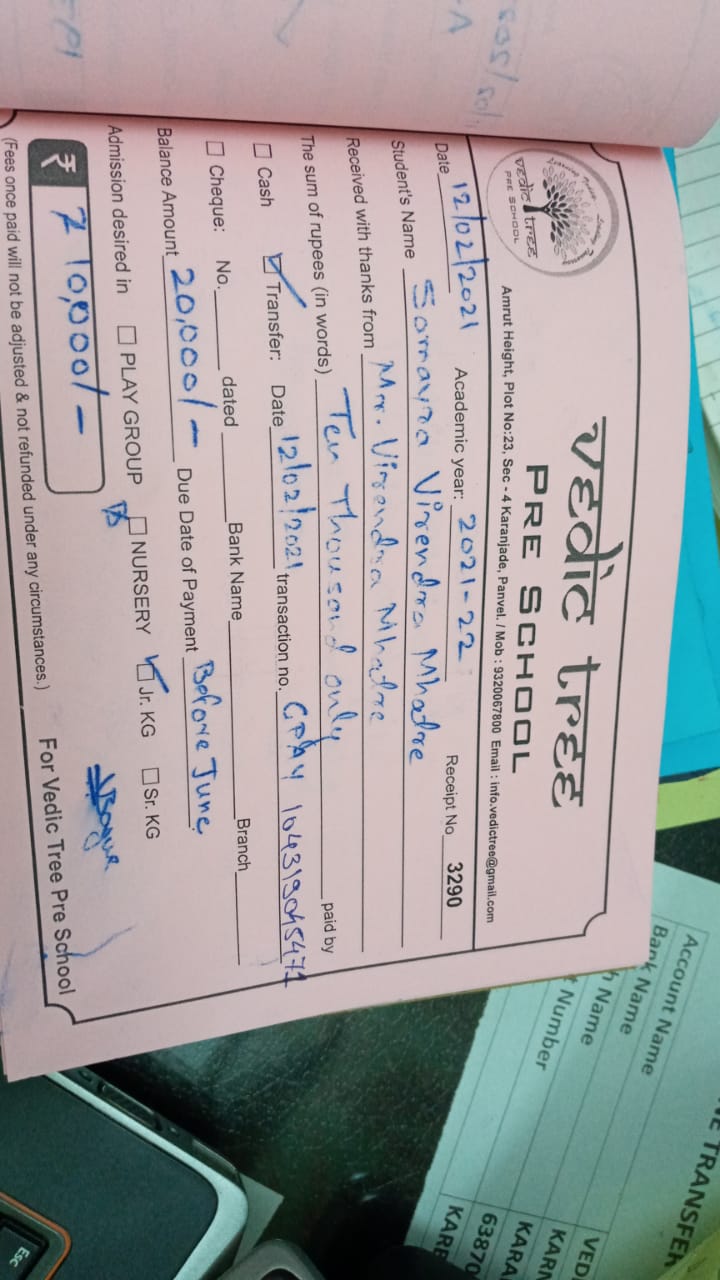 vedic tree
PRE SCHOOL
vedic tree
PRE SCHOOL
Amrut Height, Plot No:23, Sec - 4 Karanjade, Panvel. / Mob : 9320067800 Email : info.vedictree@gmail.com
Date 12/02/2021 Academic year: 2021-22 Receipt No 3290
Student's Name Somayra Virendra Mhatre
Received with thanks from Mr. Virendra Mhatre
The sum of rupees (in words) Ten Thousand only paid by
☐ Cash ☑ Transfer: Date 12/02/2021 transaction no. GPAY 104319045471
☐ Cheque: No. dated Bank Name Branch
Balance Amount 20,000/- Due Date of Payment Before June
Admission desired in ☐ PLAY GROUP ☐ NURSERY ☑ Jr. KG ☐ Sr. KG
₹ 10,000/-
For Vedic Tree Pre School
(Fees once paid will not be adjusted & not refunded under any circumstances.)
E TRANSFER
Account Name
Bank Name
Name
Number
VED
KARA
63870
KAR
Esc